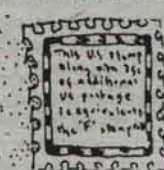 This U.S. stamp
along with 25¢
of additional
US postage
is equivalent to
the "F" stamp